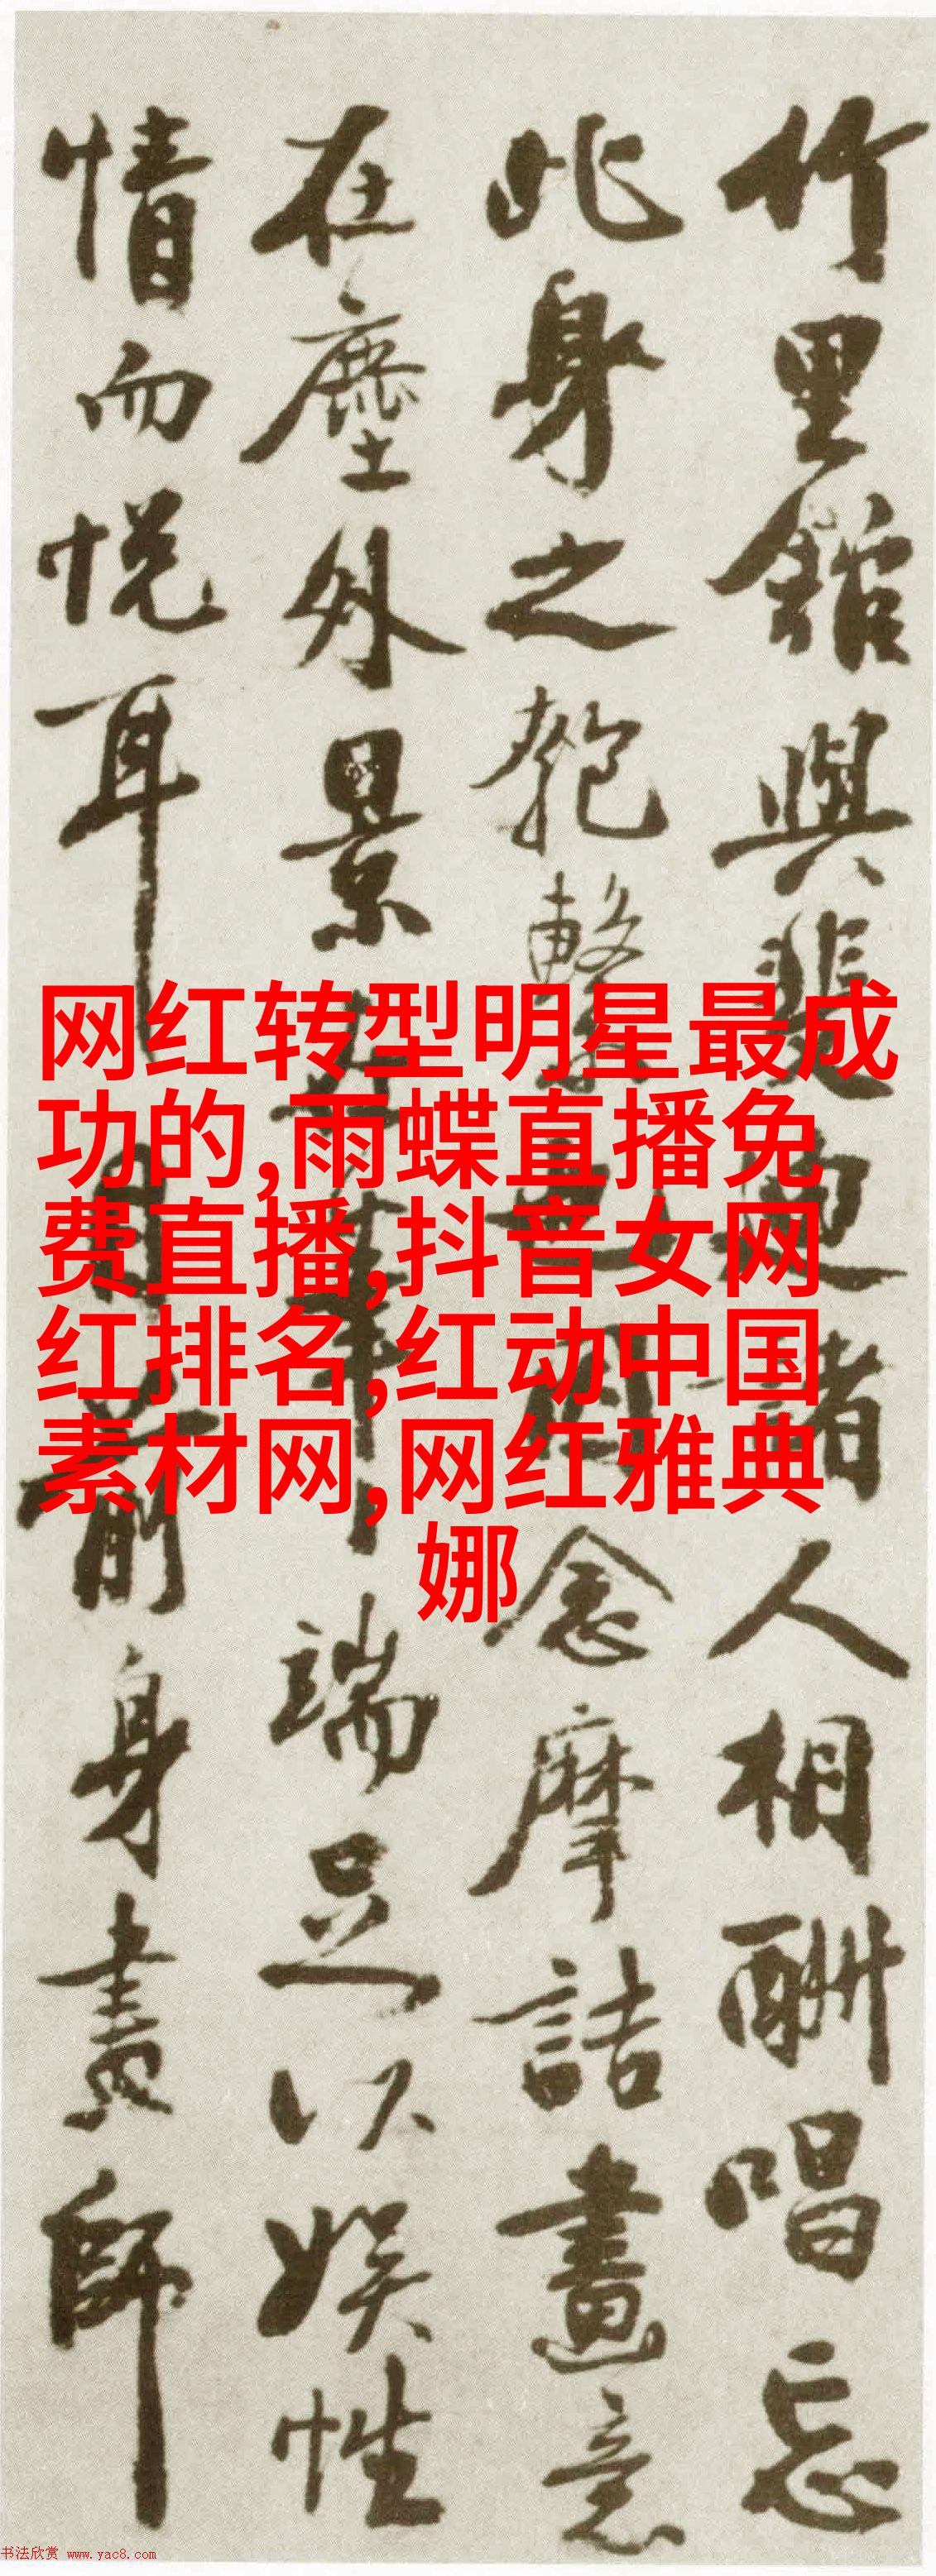 竹里館與裴迪諸人相酬唱忘
此身之匏繫也因念摩詰畫意
在塵外景在筆端足以娛性
情而悅耳目前身畫師
网红转型明星最成
功的,雨蝶直播免
费直播,抖音女网
红排名,红动中国
素材网,网红雅典
娜
书法欣赏 www.yac8.com